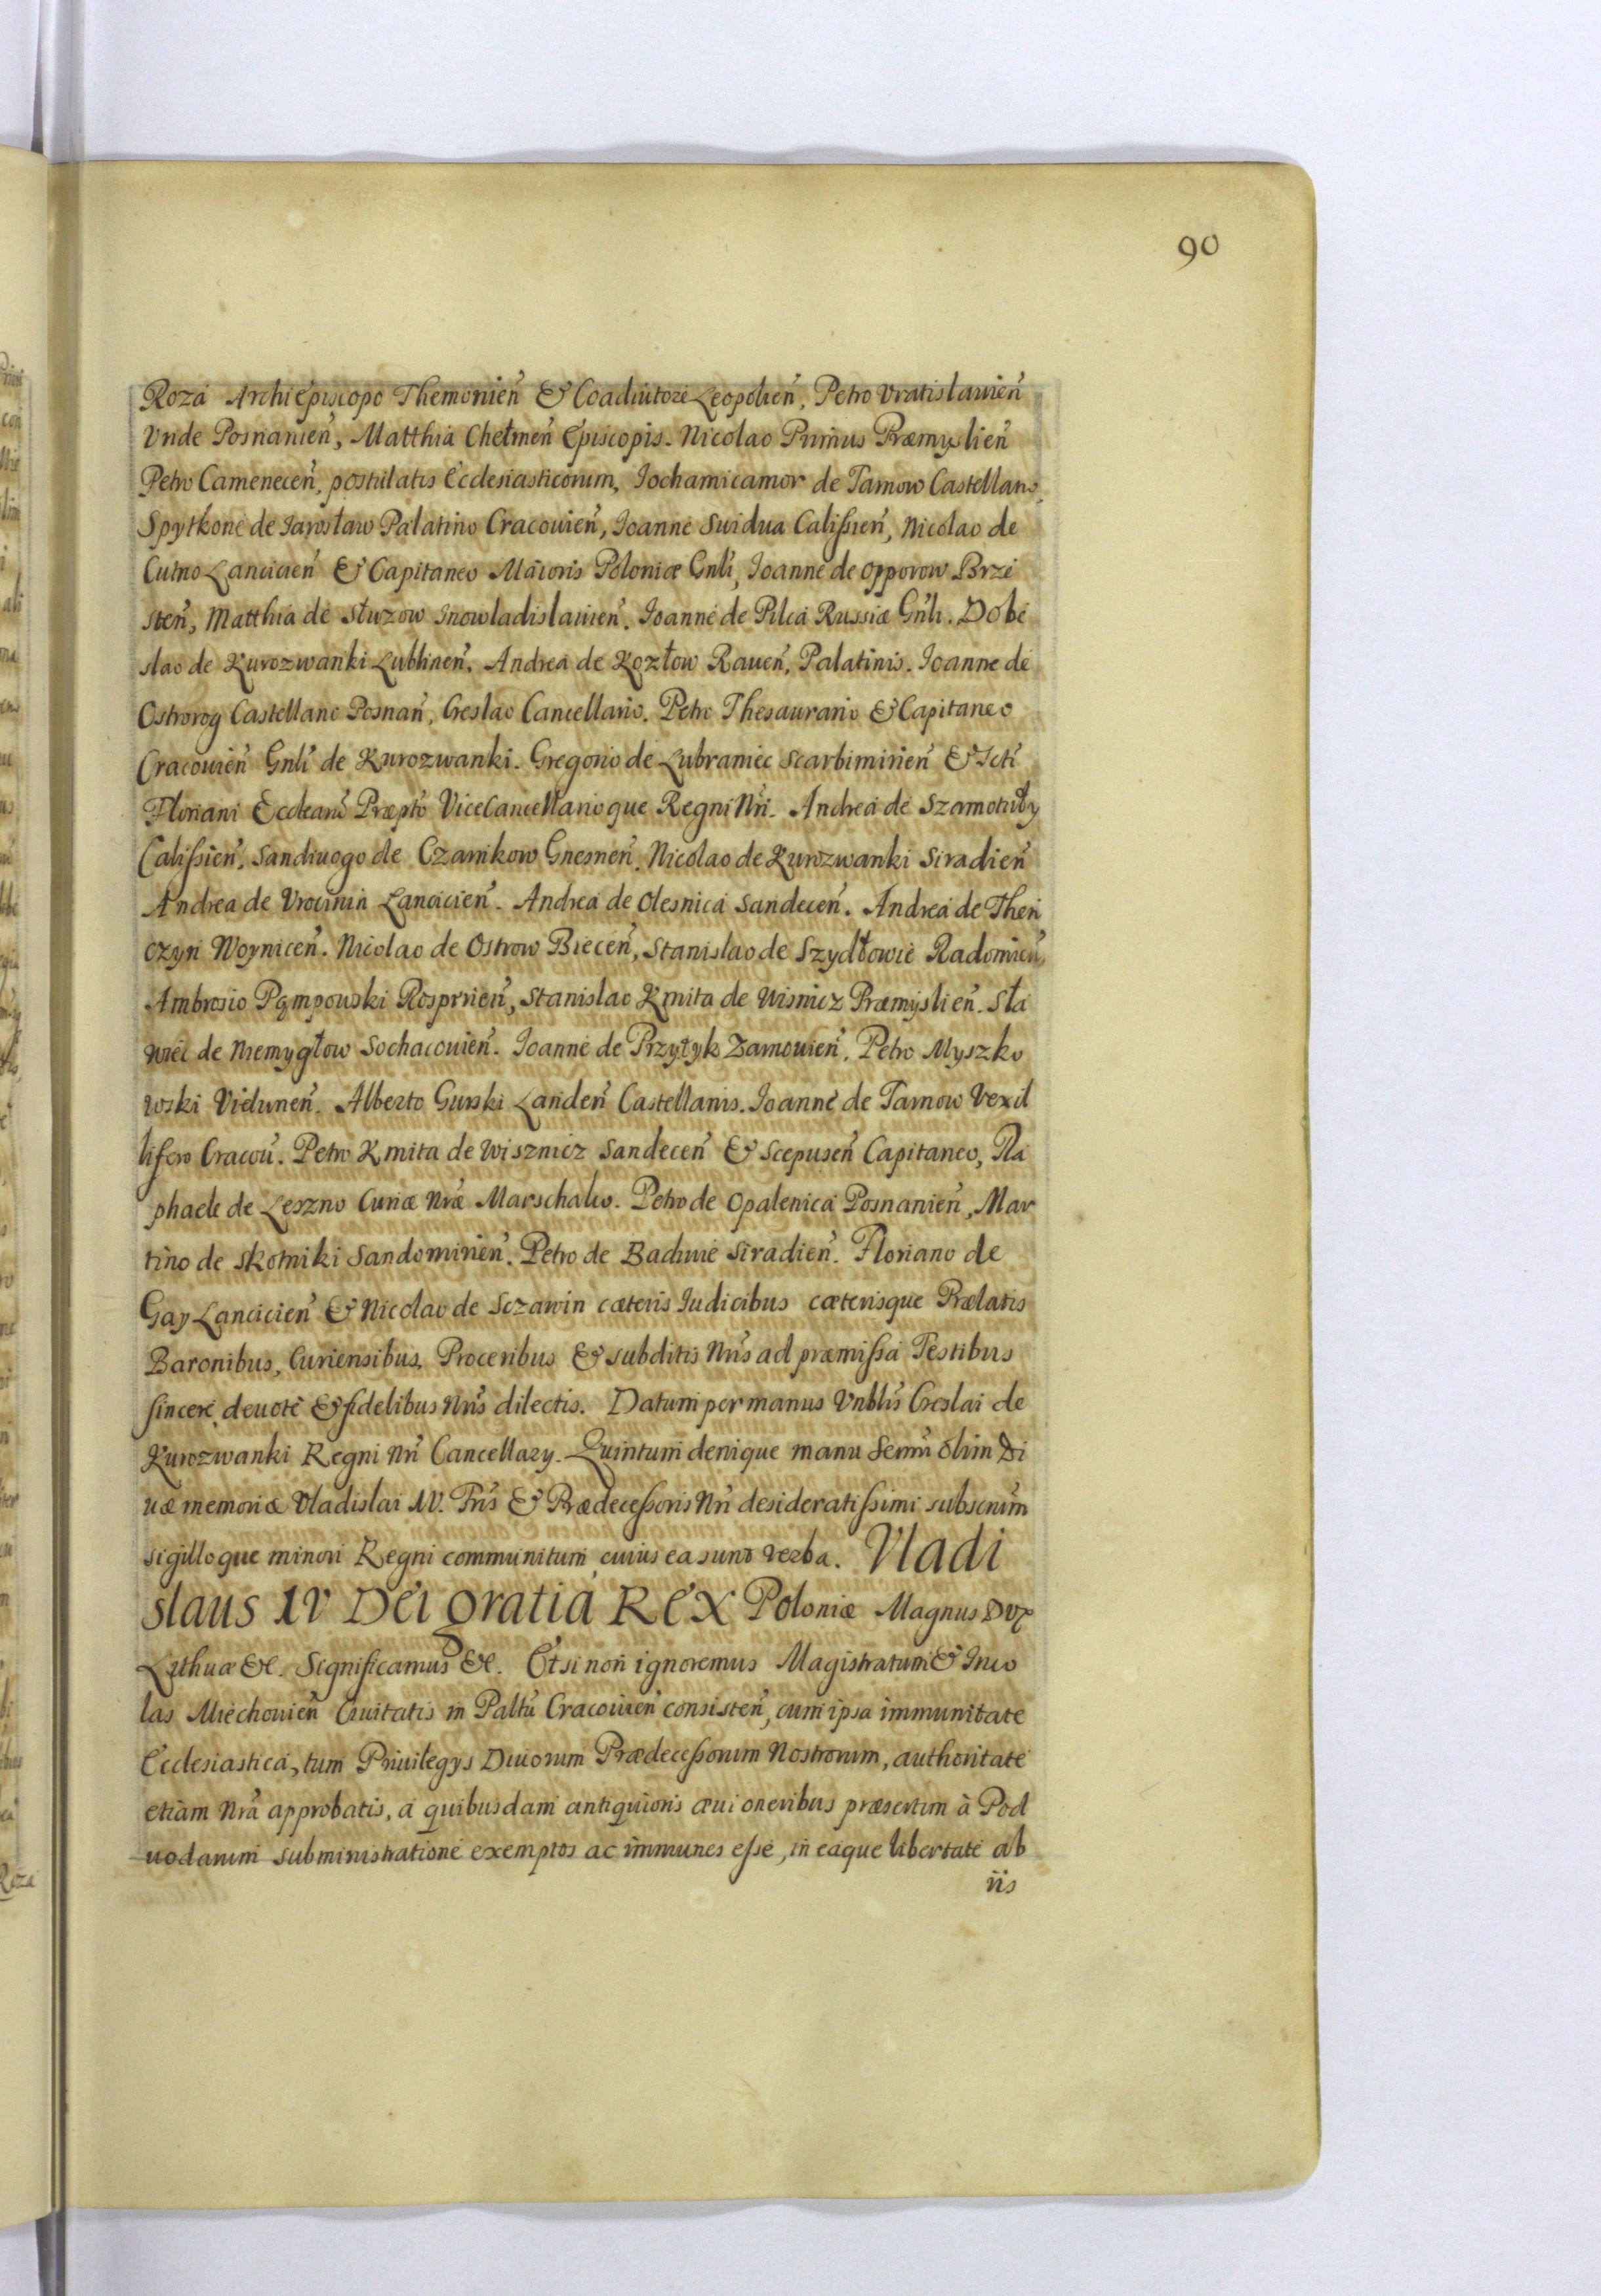 90
Roza Archiepiscopo Themonień & Coadiutore Leopolień, Petro Vratislauień
Vnde Posnanień, Matthia Chełmeń Episcopis. Nicolao Primus Præmyslień
Petro Cameneceń, postulatis Ecclesiasticorum, Jochamicamor de Tarnow Castellano,
Spytkone de Jarosław Palatino Cracouień, Joanne Swidua Calissień, Nicolao de
Cutno Lancicień & Capitaneo Maioris Poloniæ Gnli, Joanne de Opporow Brze
steń, Matthia de Słuzow Inowladislauień. Joanne de Pilca Russiæ Gnli. Dobe
slao de Kurozwanki Lublineń. Andrea de Kozłow Raueń, Palatinis. Joanne de
Ostrorog Castellano Posnań, Creslao Cancellario. Petro Thesaurario & Capitaneo
Cracouień Gnli de Kurozwanki. Gregorio de Lubraniec Scarbimirień & Scti
Floriani Ecclearũ Præpto ViceCancellarioque Regni Nri. Andrea de Szamotuły
Calissień, Sandiuogo de Czarnkow Gnesneń. Nicolao de Kurozwanki Siradień
Andrea de Vrocinin Lancicień. Andrea de Olesnica Sandeceń. Andrea de Then
czyn Woyniceń. Nicolao de Ostrow Bieceń, Stanislao de Szydłowie Radomień,
Ambrosio Pąmpowski Rosprień, Stanislao Kmita de Wisnicz Præmyslień. Sła
wiec de Niemygłow Sochacouień. Joanne de Przytyk Zarnouień. Petro Myszko
wski Vieluneń. Alberto Gurski Landeń Castellanis. Joanne de Tarnow Vexil
lifero Cracoũ. Petro Kmita de Wisznicz Sandeceń & Scepuseń Capitaneo, Ra
phaele de Leszno Curiæ Nræ Marschalco. Petro de Opalenica Posnanień, Mar
tino de Skotniki Sandomirień. Petro de Badwie Siradień. Floriano de
Gay Lancicień & Nicolao de Sczawin cæteris Iudicibus cæterisque Prælatis
Baronibus, Curiensibus, Proceribus & subditis Nris ad præmissa Testibus
sincere, deuote & fidelibus Nris dilectis. Datum per manus Vnblis Creslai de
Kurozwanki Regni Nri Cancellary. Quintum denique manu Sermi olim Di
uæ memoriæ Vladislai IV. Fris & Prædecessoris Nri desideratissimi subscrum
sigilloque minori Regni communitum, cuius ea sunt verba. Vladi
slaus IV Dei gratia Rex Poloniæ Magnus Dux
Lithuæ &c. Significamus &c. Etsi non ignoremus Magistratum & Inco
las Miechouień Ciuitatis in Paltu Cracouień consisteń, cum ipsa immunitate
Ecclesiastica, tum Priuilegys Diuorum Prædecessorum Nostrorum, authoritate
etiam Nra approbatis, a quibusdam antiquioris æui oneribus præsertim à Pod
uodarum subministratione exemptos ac immunes esse, in eaque libertate ab
iis